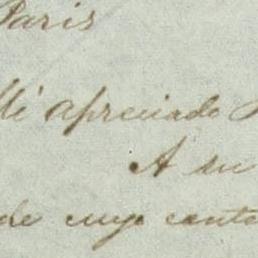 Paris
Mi apreciado
A su
de cuyo conte